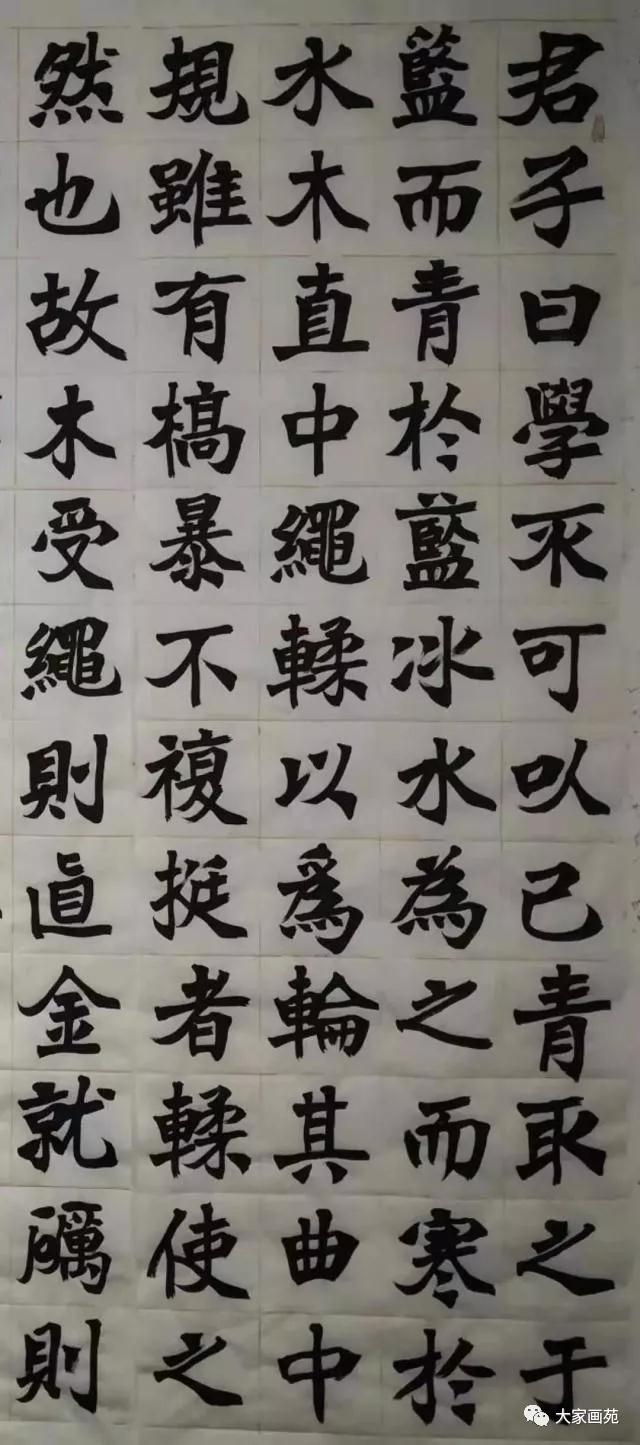 君子曰學不可以已青取之于
藍而青於藍冰水為之而寒於
水木直中繩輮以爲輪其曲中
規雖有槁暴不複挺者輮使之
然也故木受繩則直金就礪則
大家画苑